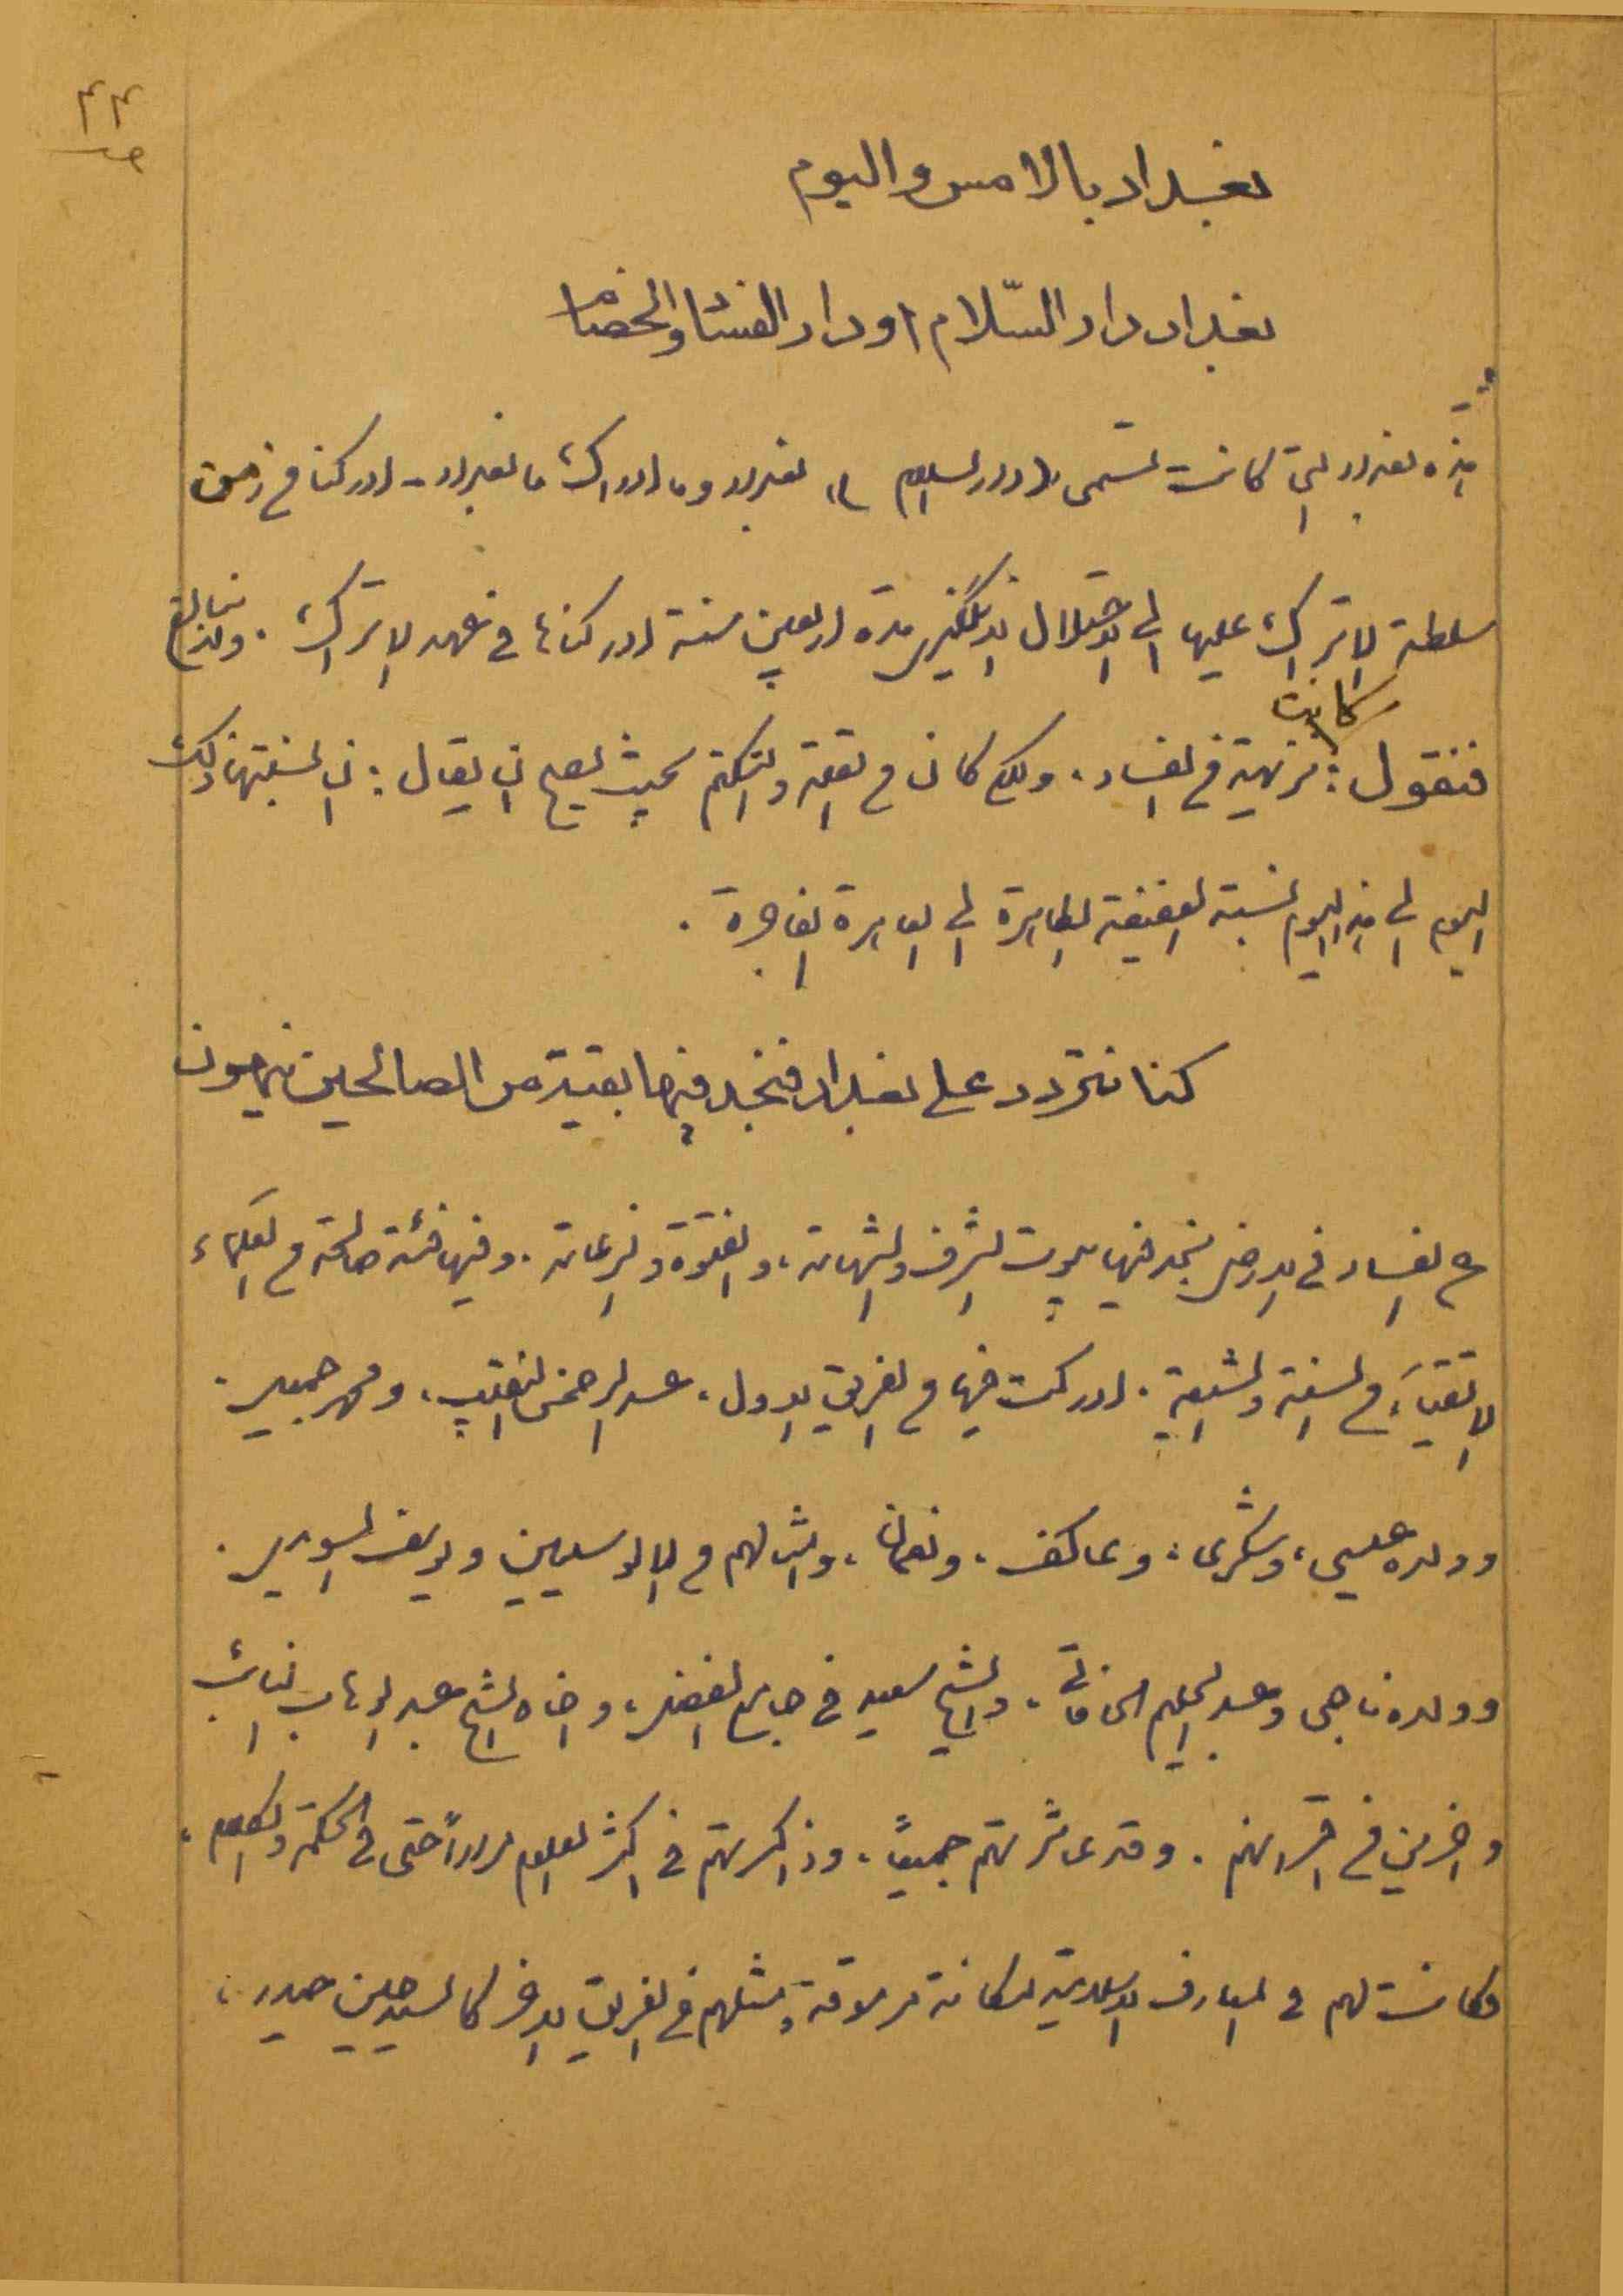 ٤٤
بغداد بالامس واليوم
بغداد دار السّلام او دار الفساد والخصام
هذه بغداد التي كانت تسمى (دار السلام) بغداد وما ادراك ما بغداد - ادركنا من زمن
سلطة الاتراك عليها الى الاحتلال الانگليزي مدة اربعين سنة ادركناها في عهد الاتراك . ولا نبالغ
فنقول : كانت نزيهة من الفساد ، ولكن كان من القلة والتكتم بحيث يصح ان يقال : ان نسبتها ذلك
اليوم الى هذا اليوم نسبة العفيفة الطاهرة الى العاهرة الفاجرة .
كنا نتردد على بغداد فنجد فيها بقية من الصالحين ينهون
عن الفساد في الارض نجد فيها بيوت الشرف والشهامة ، والفتوة والزعامة . وفيها فئة صالحة من العلماء
الاتقياء من السنة والشيعة . ادركت فيها من الفريق الاول ، عبد الرحمن النقيب ، ومهر جميل .
وولده عيسى ، وشكري ، وعاكف ، ونعمان ، وامثالهم من الالوسيين ويوسف السويدي .
وولده ناجي وعبد الحليم الحافاتي ، والشيخ سعيد في جامع الفضل ، واخاه الشيخ عبد الوهاب النائب
واخرين من اقرانهم . وقد عاشرتهم جميعاً . وذاكرتهم في اكثر العلوم مراراً حتى في الحكمة والكلام ،
وكانت لهم في المعارف الاسلامية مكانة مرموقة ومثلهم من الفريق الاخر كالسيد حسين حيدر ،